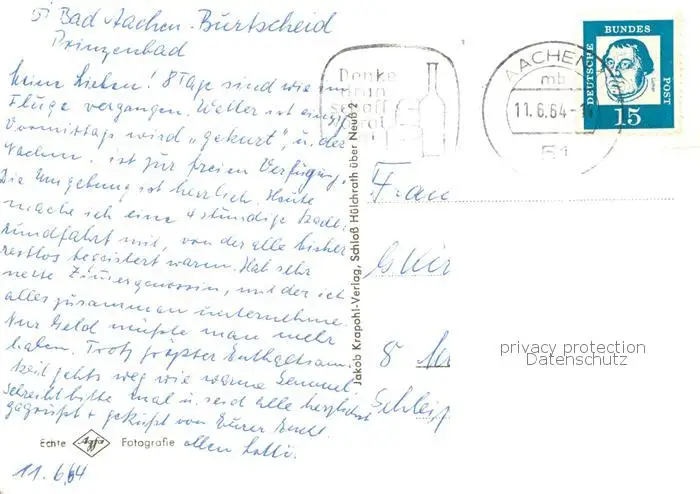 Bad Aachen-Burtscheid
Prinzenbad
Meine Lieben! 8 Tage sind wie im
Fluge vergangen. Wetter ist
Vormittags wird „gekurt", u. der
Nachm. ist zur freien Verfügung.
Die Umgebung ist herrlich. Heute
mache ich eine 4 stündige Stadt-
rundfahrt mit, von der alle bisher
restlos begeistert waren. Hab sehr
nette Zimmergenossin, mit der ich
alles zusammen unternehme.
Nur Geld müßte man mehr
haben. Trotz größter Enthaltsam-
keit gehts weg wie warme Semmel
Schreibt bitte mal u. seid alle herzlichst
gegrüßt + geküßt von Eurer
ollen Lotti.
11.6.64
Echte Agfa Fotografie
Jakob Krapohl-Verlag, Schloß Hülchrath über Neuß 2
Denke
AACHEN
mb
11.6.64-1
51
DEUTSCHE
BUNDES
POST
15
Frau
8
Schlei
privacy protection
Datenschutz